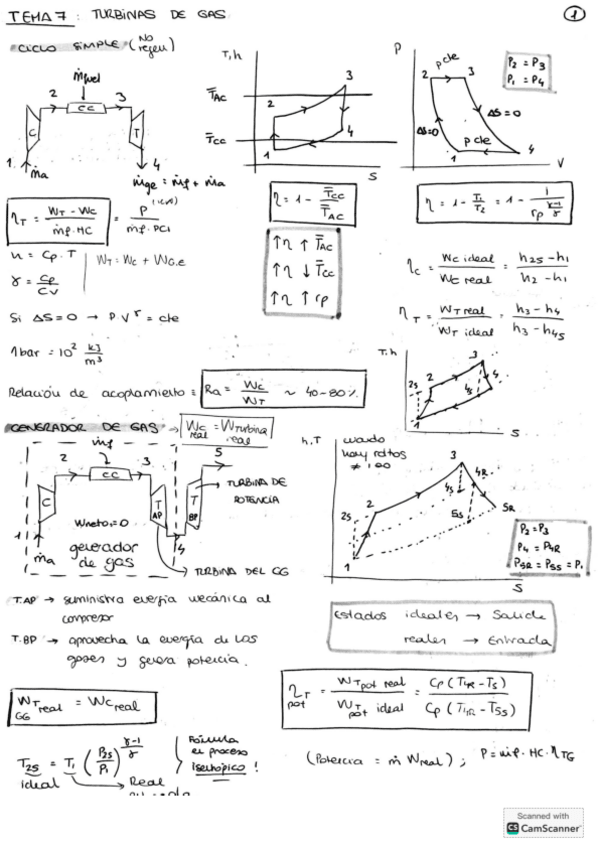 TEMA 7: TURBINAS DE GAS
1
CICLO SIMPLE (NO regen)
ṁfuel
2 CC 3
C T
1 ṁa
4
ṁge = ṁf + ṁa
T,h
T̄AC
T̄CC
1 2 3 4
S
P
p cte
2 3
ΔS=0
ΔS=0
p cte
1 4
V
P2 = P3
P1 = P4
ηT = (WT - WC) / (ṁf·HC) = P / (ṁf·PCI)
η = 1 - T̄CC / T̄AC
η = 1 - T1/T2 = 1 - 1 / rp^((γ-1)/γ)
h = Cp·T | WT = WC + WG.E
γ = Cp/CV
↑η ↑T̄AC
↑η ↓T̄CC
↑η ↑rp
ηC = WC ideal / WC real = (h2S - h1) / (h2 - h1)
ηT = WT real / WT ideal = (h3 - h4) / (h3 - h4S)
Si ΔS=0 → P·V^γ = cte
1 bar = 10² kJ/m³
T,h
1 2S 2 3 4S 4
S
Relación de acoplamiento = Ra = WC/WT ~ 40-80%
GENERADOR DE GAS → WC real = Wturbina real
ṁf
2 CC 3
C
T AP
T BP
5
Wneto=0
generador de gas
1 ṁa
4
TURBINA DE POTENCIA
TURBINA DEL GG
h,T
cuando hay rdtos ≠ 100
1 2S 2 3 4S 4R 5S 5R
S
P2 = P3
P4 = P4R
P5R = P5S = P1
T.AP → suministra energía mecánica al
compresor
T.BP → aprovecha la energía de los
gases y genera potencia.
Estados ideales → Salida
reales → Entrada
WT real GG = WC real
ηT pot = WT pot real / WT pot ideal = Cp (T4R - T5) / Cp (T4R - T5S)
T2S = T1 (P2S/P1)^((γ-1)/γ)
ideal
Real
Fórmula
en proceso
Isentrópico!
(Potencia = ṁ Wreal) ; P = ṁf·HC·ηTG
Scanned with
CS CamScanner